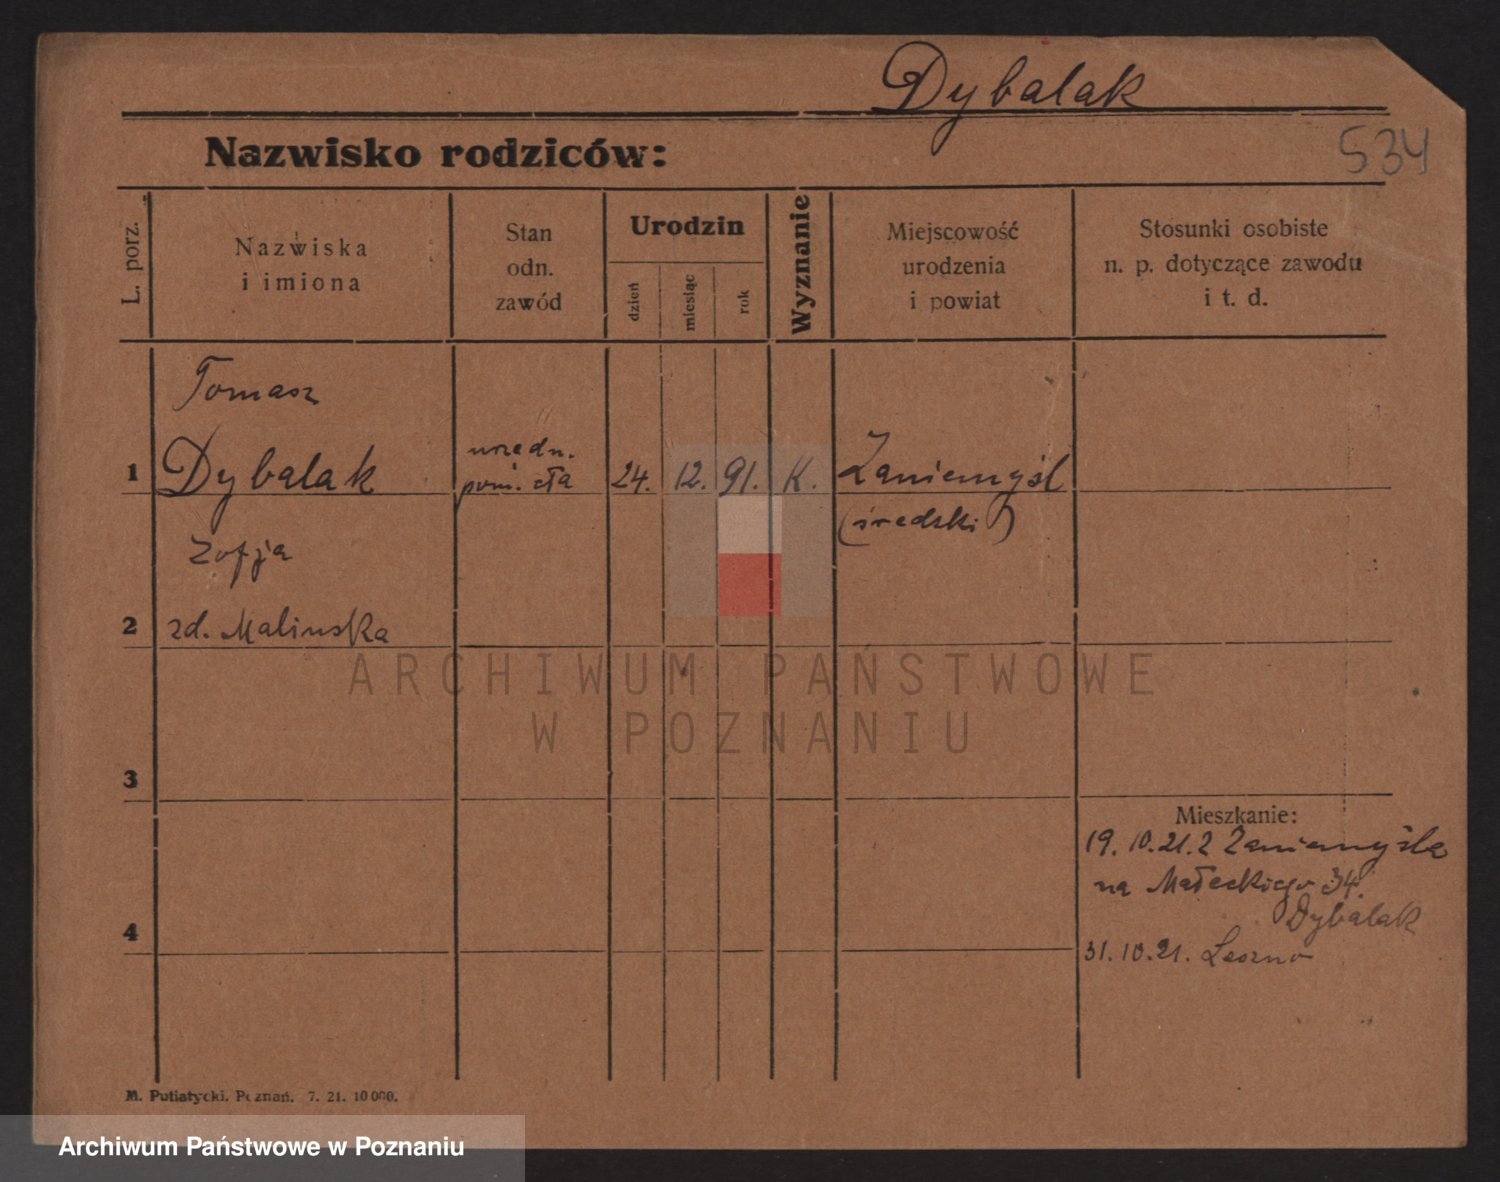 Dybalak
534
Nazwisko rodziców:
L. porz.
Nazwiska
i imiona
Stan
odn.
zawód
Urodzin
dzień
miesiąc
rok
Wyznanie
Miejscowość
urodzenia
i powiat
Stosunki osobiste
n. p. dotyczące zawodu
i t. d.
Tomasz
1 Dybalak
urzędn.
24. 12. 91. K. Zaniemyśl
(średzki)
Zofja
2 zd. Malinska
ARCHIWUM PAŃSTWOWE
W POZNANIU
3
Mieszkanie:
19. 10. 21. z Zaniemyśla
na Małeckiego 34.
Dybalak
4
31. 10. 21. Leszno
M. Putiatycki. Poznań. 7. 21. 10 000.
Archiwum Państwowe w Poznaniu